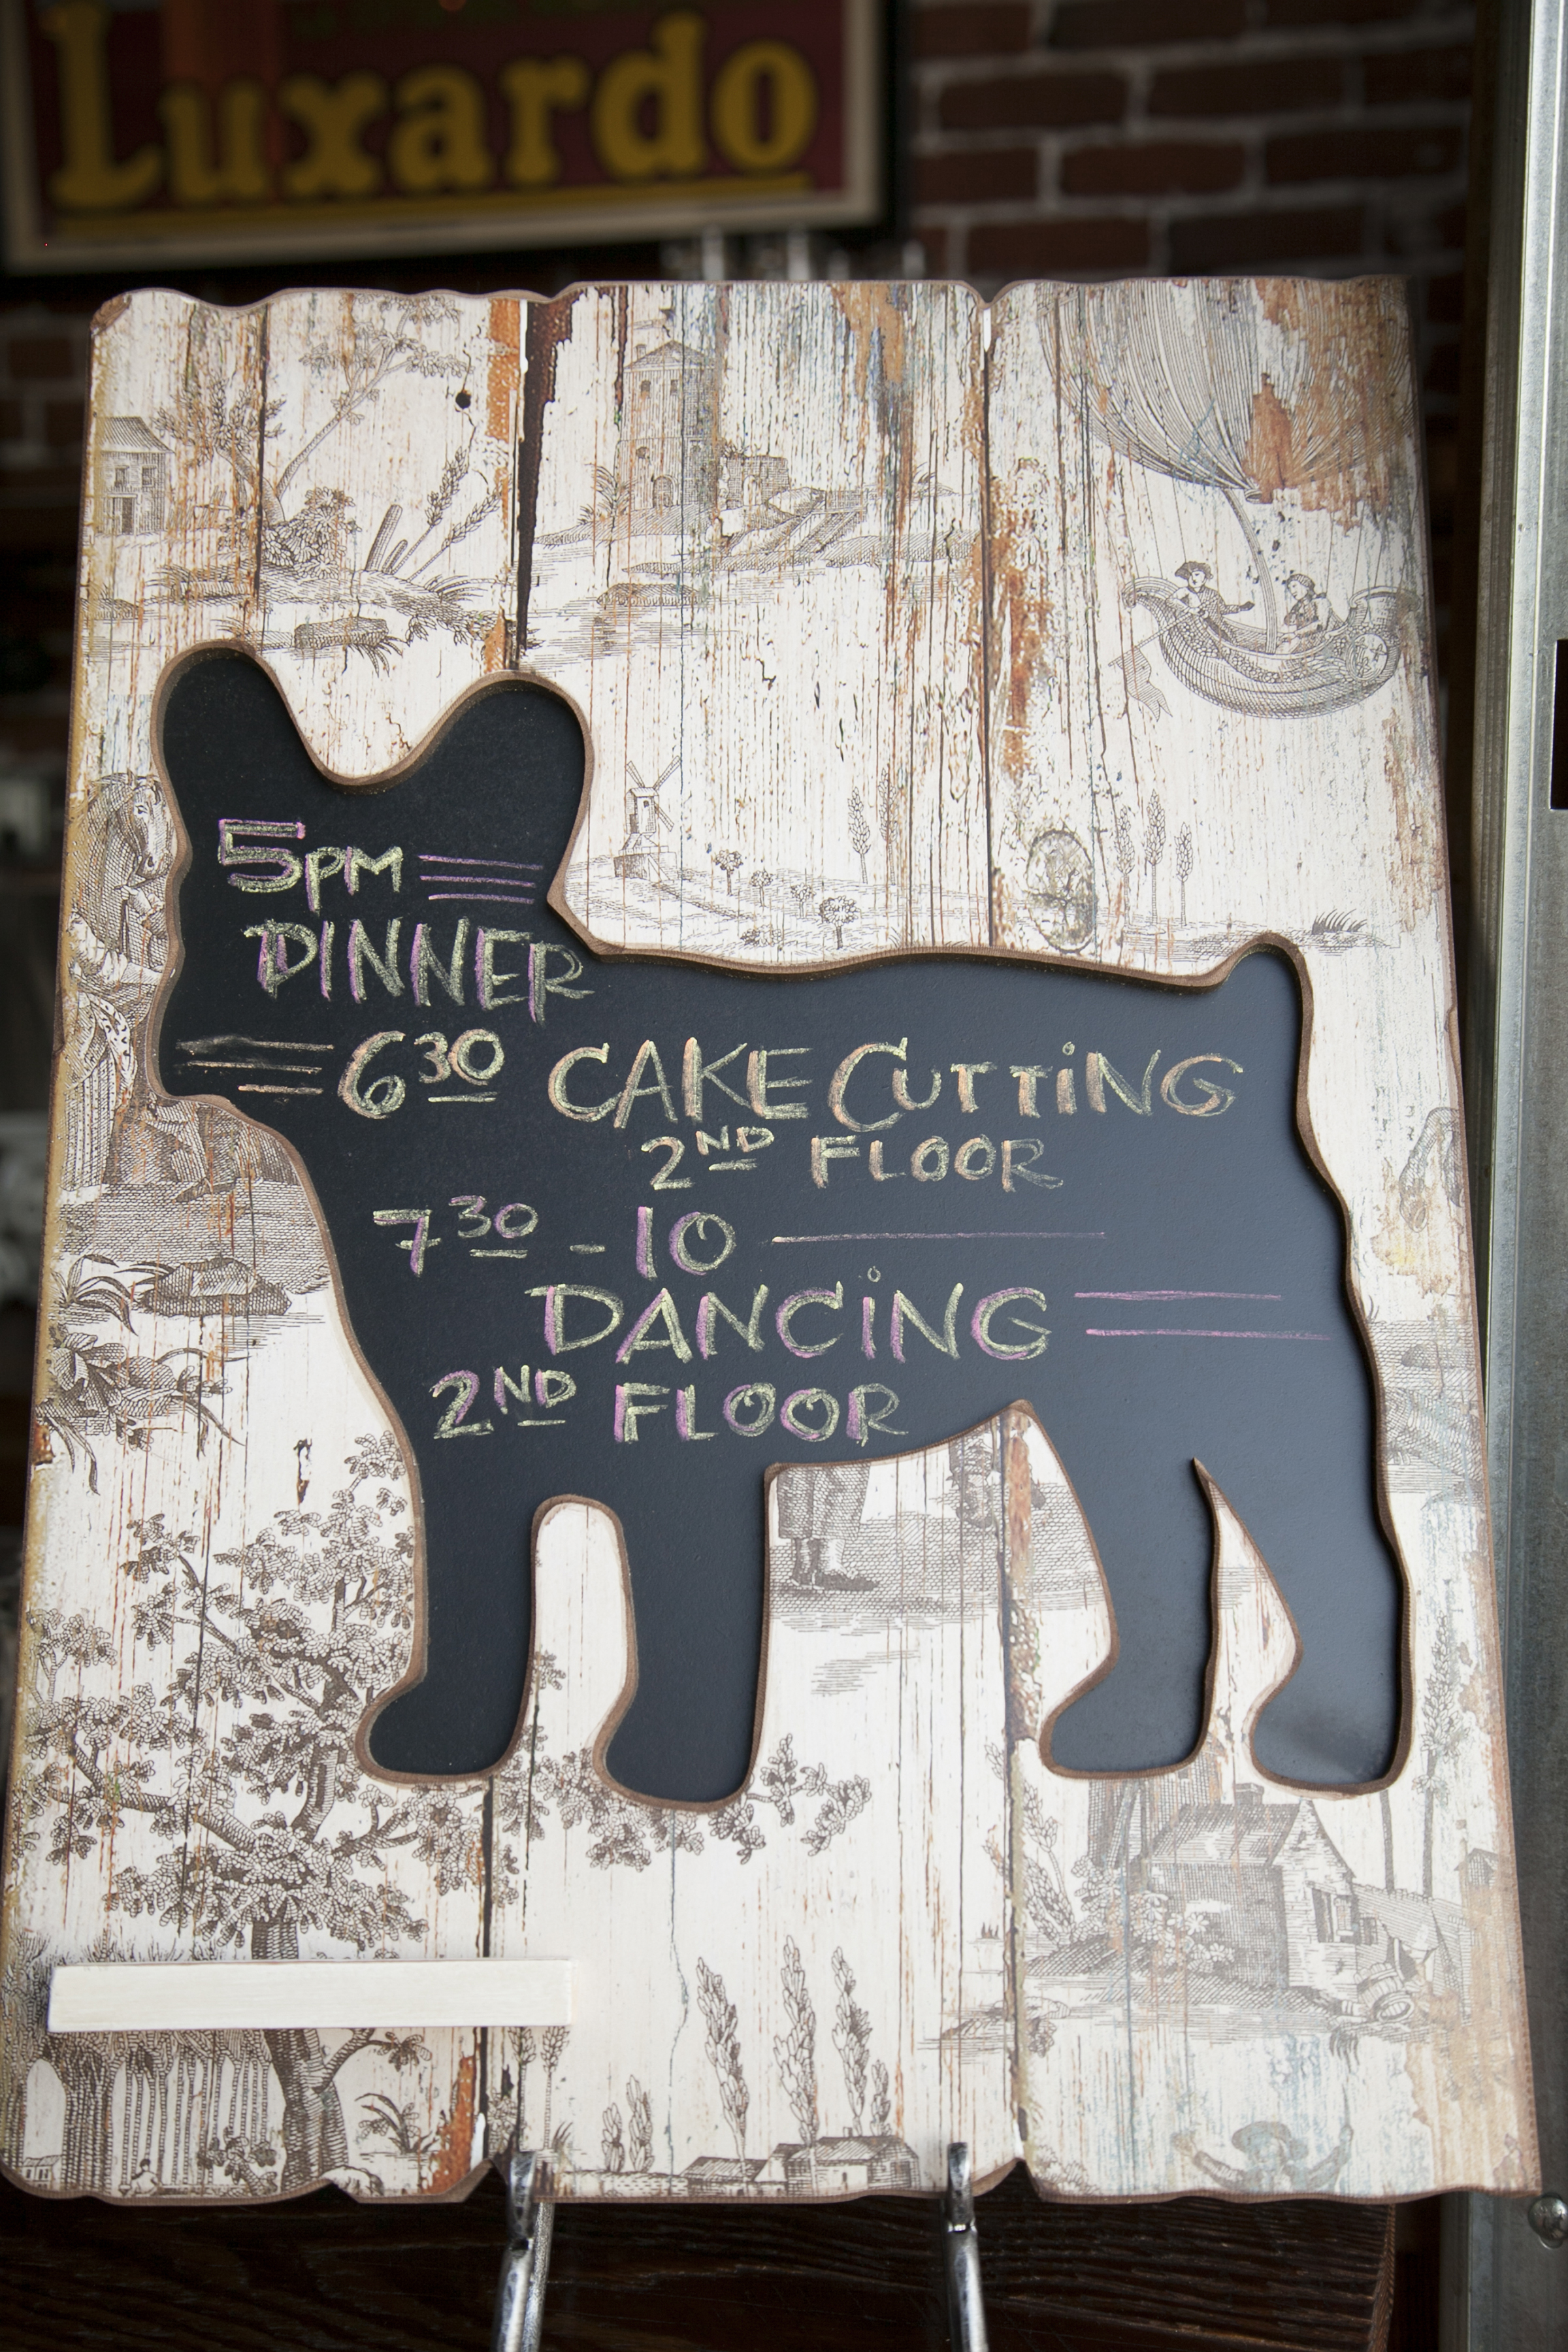 Luxardo
5PM
DINNER
6 30 CAKE CUTTING
2ND FLOOR
7 30 - 10
DANCING
2ND FLOOR